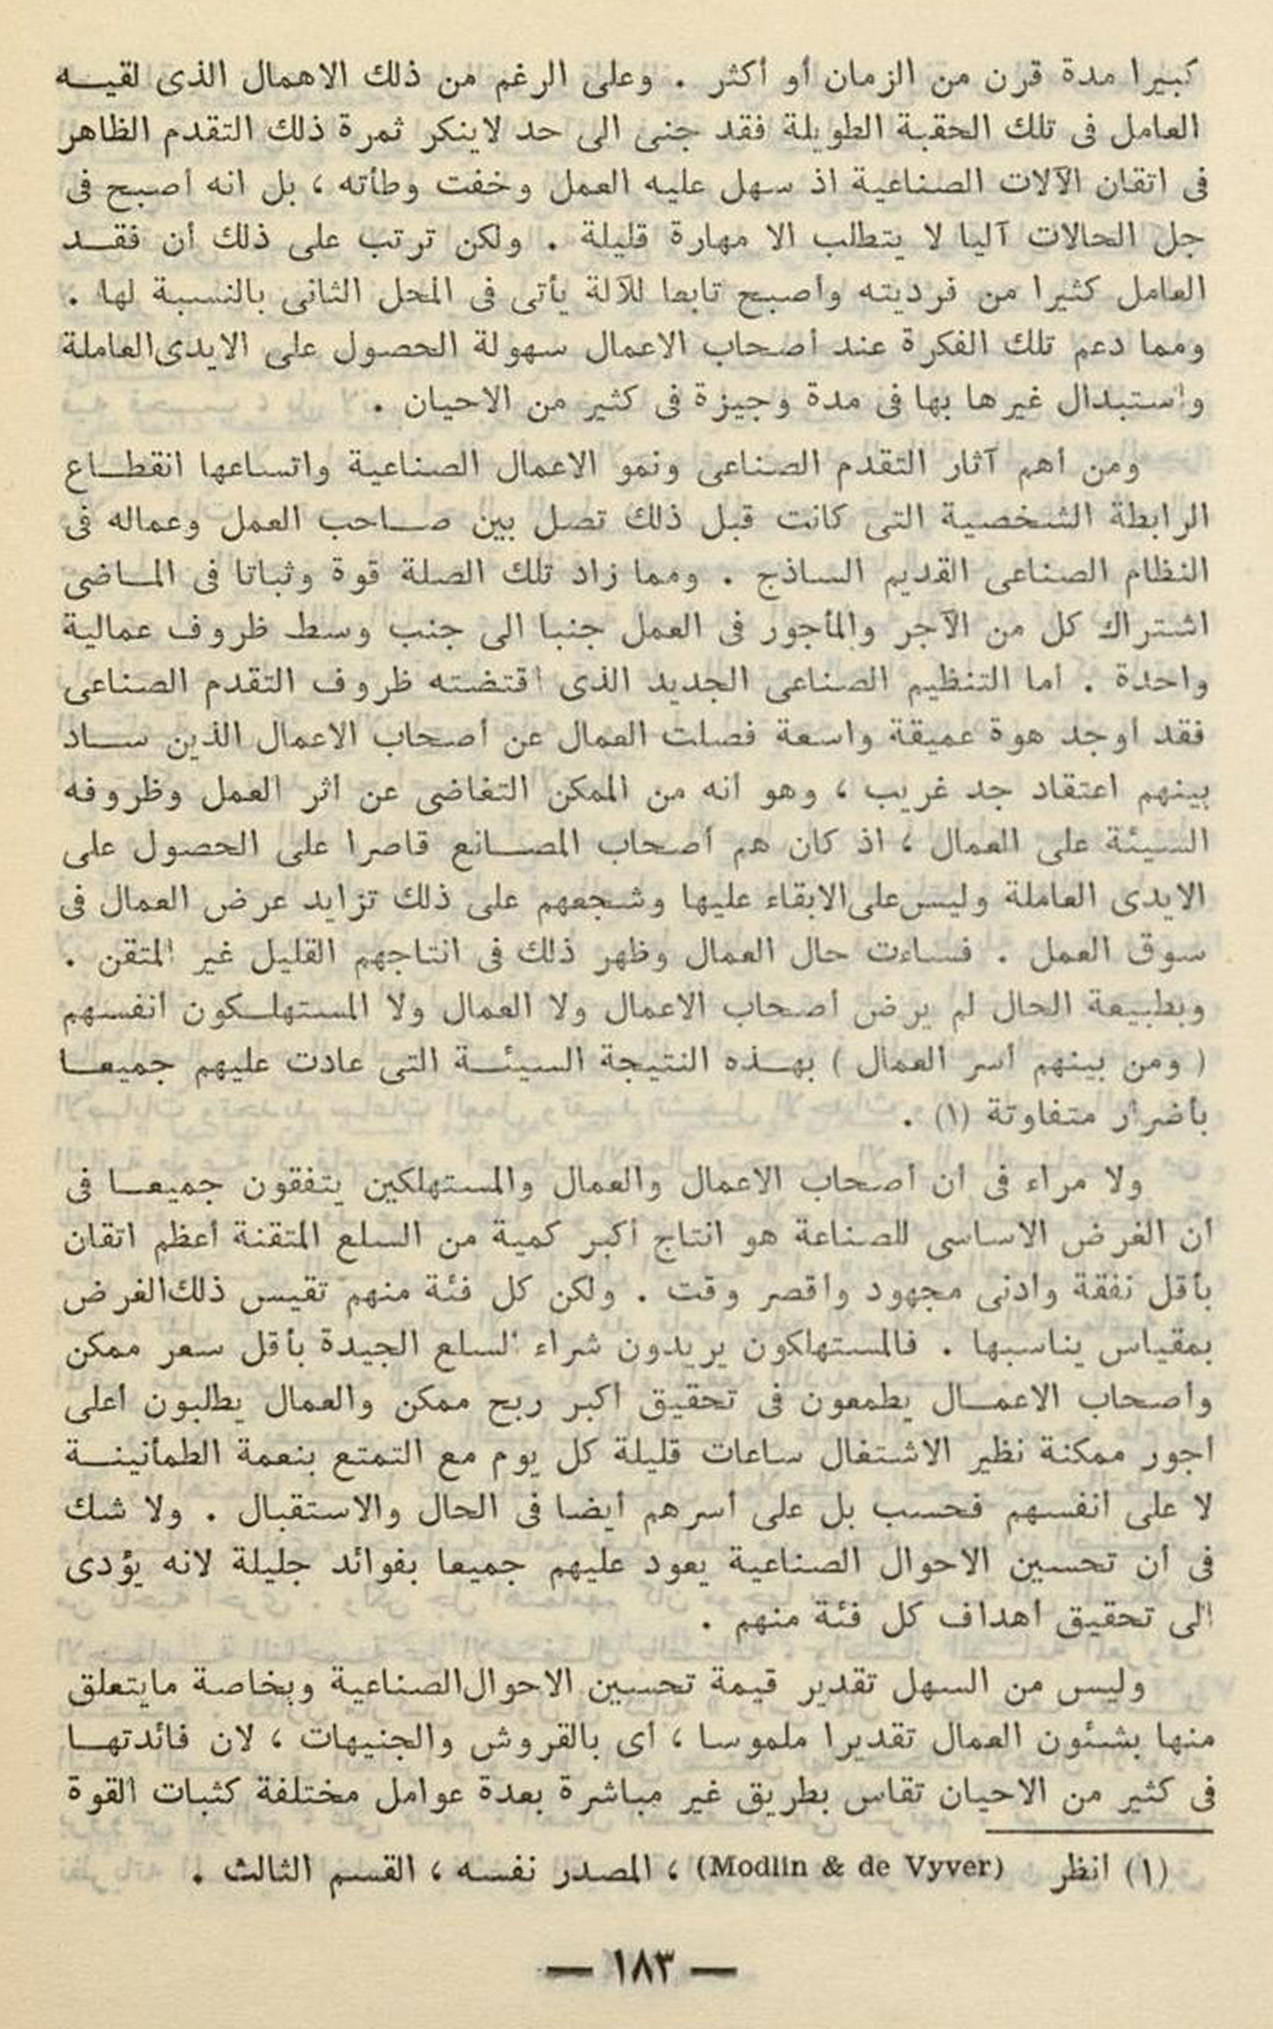 كبيرا مدة قرن من الزمان أو أكثر . وعلى الرغم من ذلك الاهمال الذى لقيـــه
العامل فى تلك الحقبة الطويلة فقد جنى الى حد لاينكر ثمرة ذلك التقدم الظاهر
فى اتقان الآلات الصناعية اذ سهل عليه العمل وخفت وطأته ، بل انه أصبح فى
جل الحالات آليا لا يتطلب الا مهارة قليلة . ولكن ترتب على ذلك أن فقـــد
العامل كثيرا من فرديته وأصبح تابعا للآلة يأتى فى المحل الثانى بالنسبة لها .
ومما دعم تلك الفكرة عند أصحاب الاعمال سهولة الحصول على الايدى العاملة
واستبدال غيرها بها فى مدة وجيزة فى كثير من الاحيان .
ومن أهم آثار التقدم الصناعى ونمو الاعمال الصناعية واتساعها انقطـــاع
الرابطة الشخصية التى كانت قبل ذلك تصل بين صـــاحب العمل وعماله فى
النظام الصناعى القديم الساذج . ومما زاد تلك الصلة قوة وثباتا فى المـــاضى
اشتراك كل من الآجر والمأجور فى العمل جنبا الى جنب وسط ظروف عمالية
واحدة . أما التنظيم الصناعى الجديد الذى اقتضته ظروف التقدم الصناعى
فقد أوجد هوة عميقة واسعة فصلت العمال عن أصحاب الاعمال الذين ســـاد
بينهم اعتقاد جد غريب ، وهو أنه من الممكن التغاضى عن أثر العمل وظروفه
السيئة على العمال ، اذ كان هم أصحاب المصـــانع قاصرا على الحصول على
الايدى العاملة وليس على الابقاء عليها وشجعهم على ذلك تزايد عرض العمال فى
سوق العمل . فساءت حال العمال وظهر ذلك فى انتاجهم القليل غير المتقن .
وبطبيعة الحال لم يرض أصحاب الاعمال ولا العمال ولا المستهلـــكون أنفسهم
( ومن بينهم أسر العمال ) بهـــذه النتيجة السيئـــة التى عادت عليهم جميعـــا
بأضرار متفاوتة (١) .
ولا مراء فى أن أصحاب الاعمال والعمال والمستهلكين يتفقون جميعـــا فى
أن الغرض الاساسى للصناعة هو انتاج أكبر كمية من السلع المتقنة أعظم اتقان
بأقل نفقة وأدنى مجهود وأقصر وقت . ولكن كل فئة منهم تقيس ذلك الغرض
بمقياس يناسبها . فالمستهلكون يريدون شراء السلع الجيدة بأقل سعر ممكن
وأصحاب الاعمـــال يطمعون فى تحقيق أكبر ربح ممكن والعمال يطلبون أعلى
أجور ممكنة نظير الاشتغال ساعات قليلة كل يوم مع التمتع بنعمة الطمأنينـــة
لا على أنفسهم فحسب بل على أسرهم أيضا فى الحال والاستقبال . ولا شك
فى أن تحسين الاحوال الصناعية يعود عليهم جميعا بفوائد جليلة لانه يؤدى
الى تحقيق أهداف كل فئة منهم .
وليس من السهل تقدير قيمة تحسين الاحوال الصناعية وبخاصة مايتعلق
منها بشئون العمال تقديرا ملموسا ، أى بالقروش والجنيهات ، لان فائدتهـــا
فى كثير من الاحيان تقاس بطريق غير مباشرة بعدة عوامل مختلفة كثبات القوة
(١) انظر (Modlin & de Vyver) ، المصدر نفسه ، القسم الثالث .
— ١٨٣ —